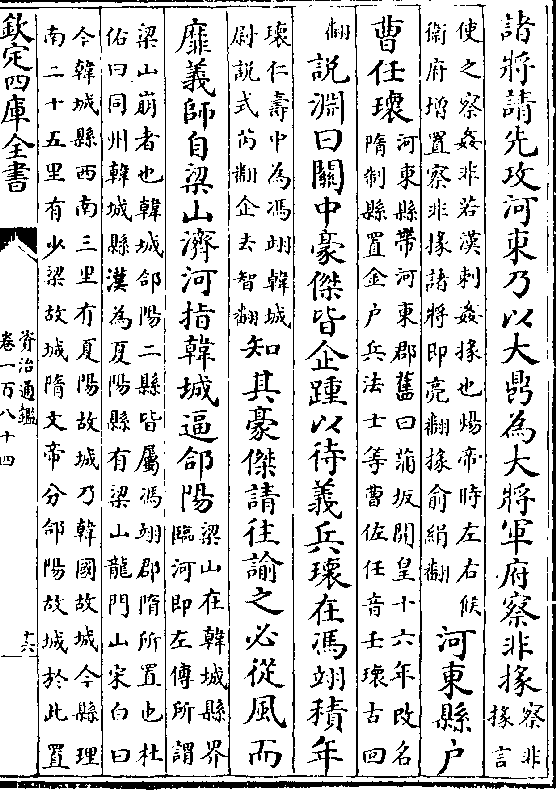 諸將請先攻河東乃以大鼎為大將軍府察非掾
察非
掾言
使之察姦非若漢刺姦掾也煬帝時左右候
衛府增置察非掾諸將即亮翻掾俞絹翻
河東縣户
曹任瓌
河東縣帶河東郡舊曰蒲坂開皇十六年改名
隋制縣置金户兵法士等曹佐任音壬瓌古回
翻
說淵曰關中豪傑皆企踵以待義兵瓌在馮翊積年
瓌仁壽中為馮翊韓城
尉說式芮翻企去智翻
知其豪傑請往諭之必從風而
靡義師自梁山濟河指韓城逼郃陽
梁山在韓城縣界
臨河即左傳所謂
梁山崩者也韓城郃陽二縣皆屬馮翊郡隋所置也杜
佑曰同州韓城縣漢為夏陽縣有梁山龍門山宋白曰
今韓城縣西南三里有夏陽故城乃韓國故城今縣理
南二十五里有少梁故城隋文帝分郃陽故城於此置
欽定四庫全書
資治通鑑
卷一百八十四
十六